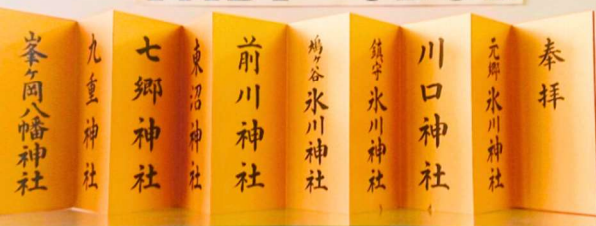 奉拝
元郷 氷川神社
川口神社
鎮守 氷川神社
鳩ヶ谷 氷川神社
前川神社
東沼神社
七郷神社
九重神社
峯ヶ岡八幡神社